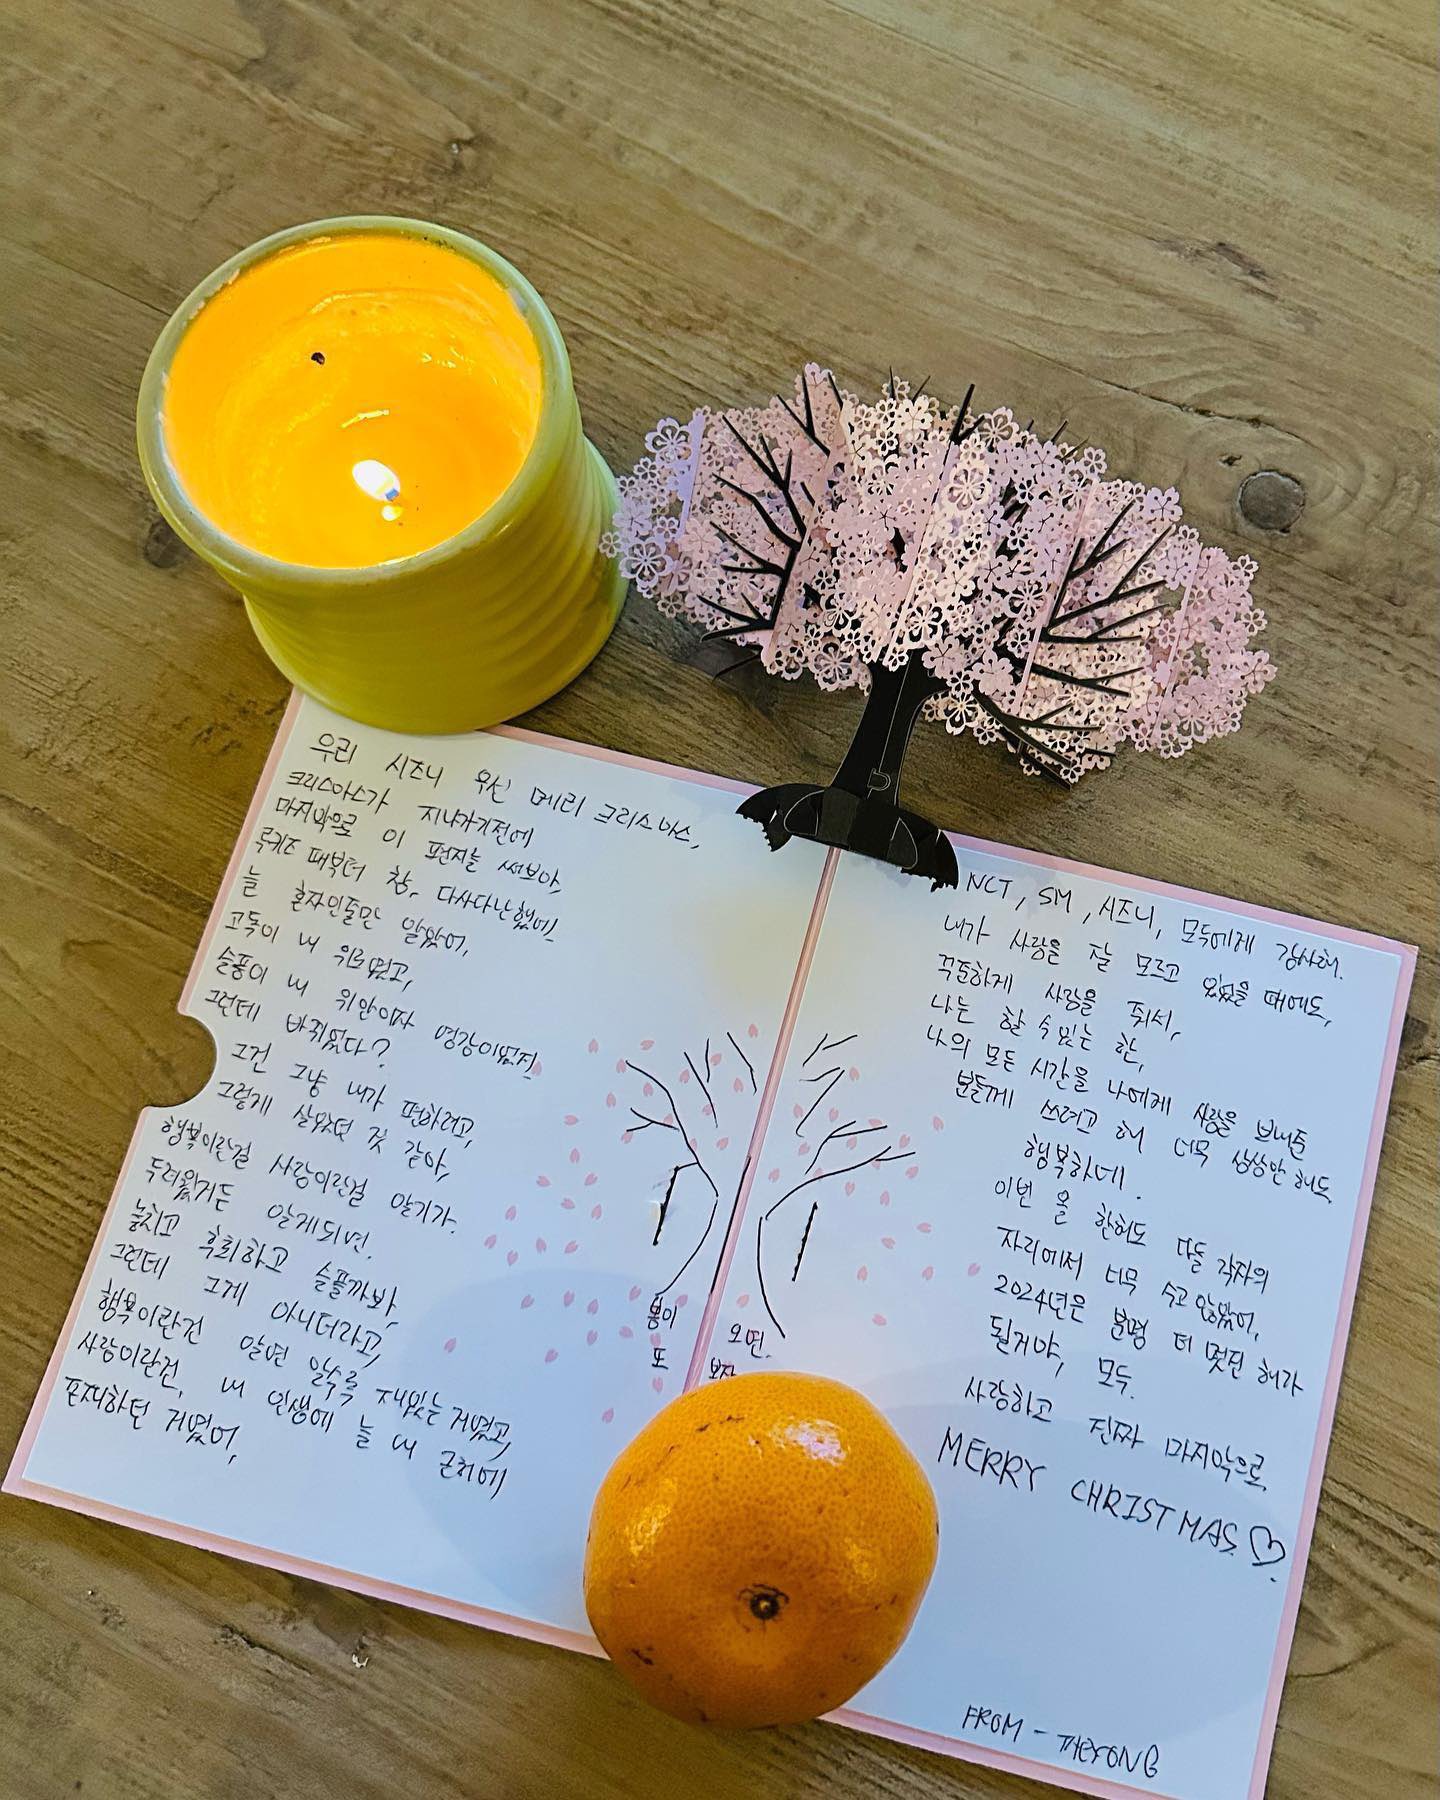 우리 시즈니 우선 메리 크리스마스,
크리스마스가 지나가기전에
마지막으로 이 편지를 써보아,
루키즈 때부터 참, 다사다난했어!
늘 혼자인줄만 알았어,
고독이 내 위로였고,
슬픔이 내 위안이자 영감이였지!
그런데 바뀌었다?
그건 그냥 내가 편하려고,
그렇게 살았던 것 같아,
행복이란걸 사랑이란걸 알기가.
두려웠거든 알게되면.
놓치고 후회하고 슬플까봐,
그런데 그게 아니더라고,
행복이란건 알면 알수록 재밌는 거였고,
사랑이란건, 내 인생에 늘 내 근처에
존재하던 거였어,
봄이
또
오면.
보자
NCT, SM, 시즈니, 모두에게 감사해.
내가 사랑을 잘 모르고 있었을 때에도,
꾸준하게 사랑을 줘서,
나는 할 수 있는 한,
나의 모든 시간을 나에게 사랑을 보내준
분들께 쓰려고 해 너무 상상만 해도
행복하네.
이번 을 한해도 다들 각자의
자리에서 너무 수고 많았어,
2024년은 분명 더 멋진 해가
될거야, 모두.
사랑하고 진짜 마지막으로
MERRY CHRISTMAS ♡.
FROM - TAEYONG